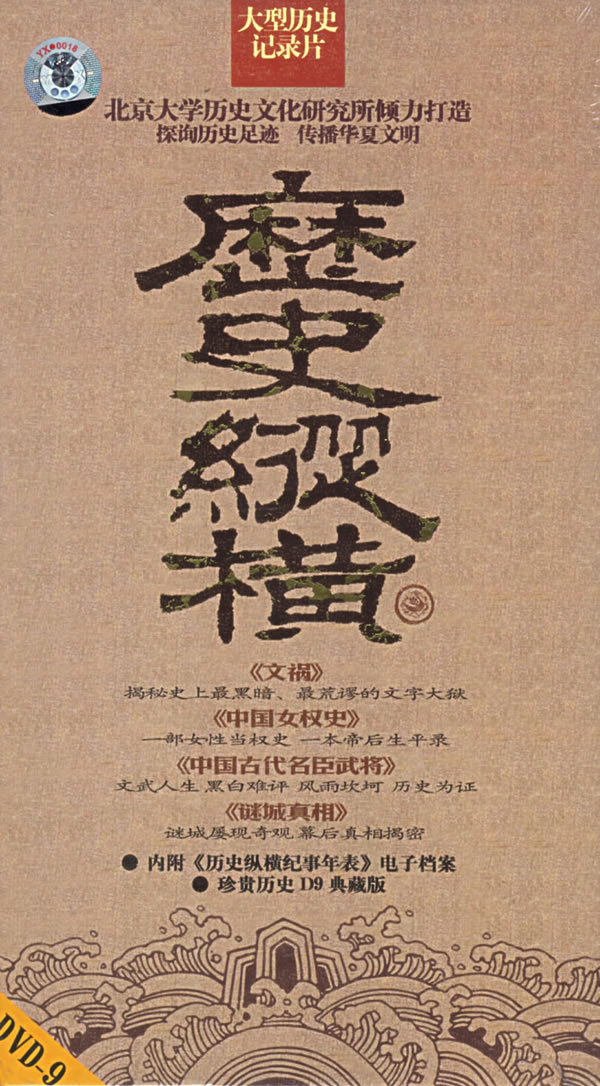 大型历史
记录片
YX●0018
北京大学历史文化研究所倾力打造
探询历史足迹 传播华夏文明
歷
史
縱
橫
《文祸》
揭秘史上最黑暗、最荒谬的文字大狱
《中国女权史》
一部女性当权史 一本帝后生平录
《中国古代名臣武将》
文武人生 黑白难评 风雨坎坷 历史为证
《谜城真相》
谜城屡现奇观 幕后真相揭密
● 内附《历史纵横纪事年表》电子档案
● 珍贵历史 D9 典藏版
DVD-9